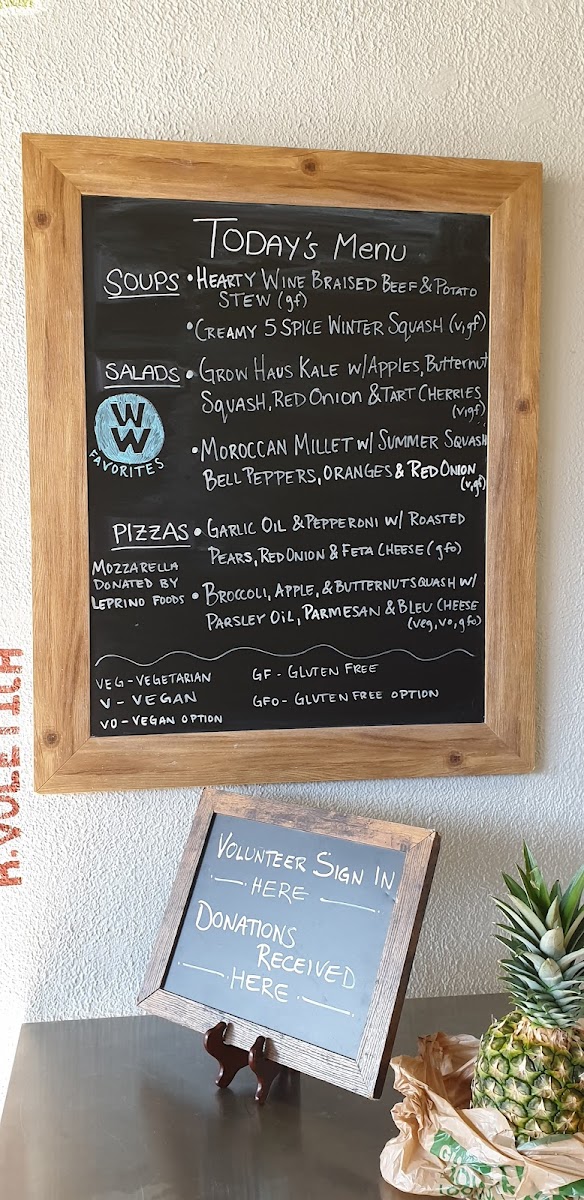 TODAY'S MENU
SOUPS • HEARTY WINE BRAISED BEEF & POTATO
STEW (gf)
• CREAMY 5 SPICE WINTER SQUASH (v,gf)
SALADS • GROW HAUS KALE W/APPLES, Butternut
SQUASH, RED ONION & TART CHERRIES
(v,gf)
WW
FAVORITES
• MOROCCAN MILLET W/ SUMMER SQUASH
BELL PEPPERS, ORANGES & RED ONION
(v,gf)
PIZZAS • GARLIC OIL & PEPPERONI W/ ROASTED
PEARS, RED ONION & FETA CHEESE (gfo)
MOZZARELLA
DONATED BY
LEPRINO FOODS
• BROCCOLI, APPLE, & BUTTERNUT SQUASH W/
PARSLEY OIL, PARMESAN & BLEU CHEESE
(veg, vo, gfo)
VEG - VEGETARIAN
V - VEGAN
VO - VEGAN OPTION
GF - GLUTEN FREE
GFO - GLUTEN FREE OPTION
VOLUNTEER SIGN IN
HERE
DONATIONS
RECEIVED
HERE